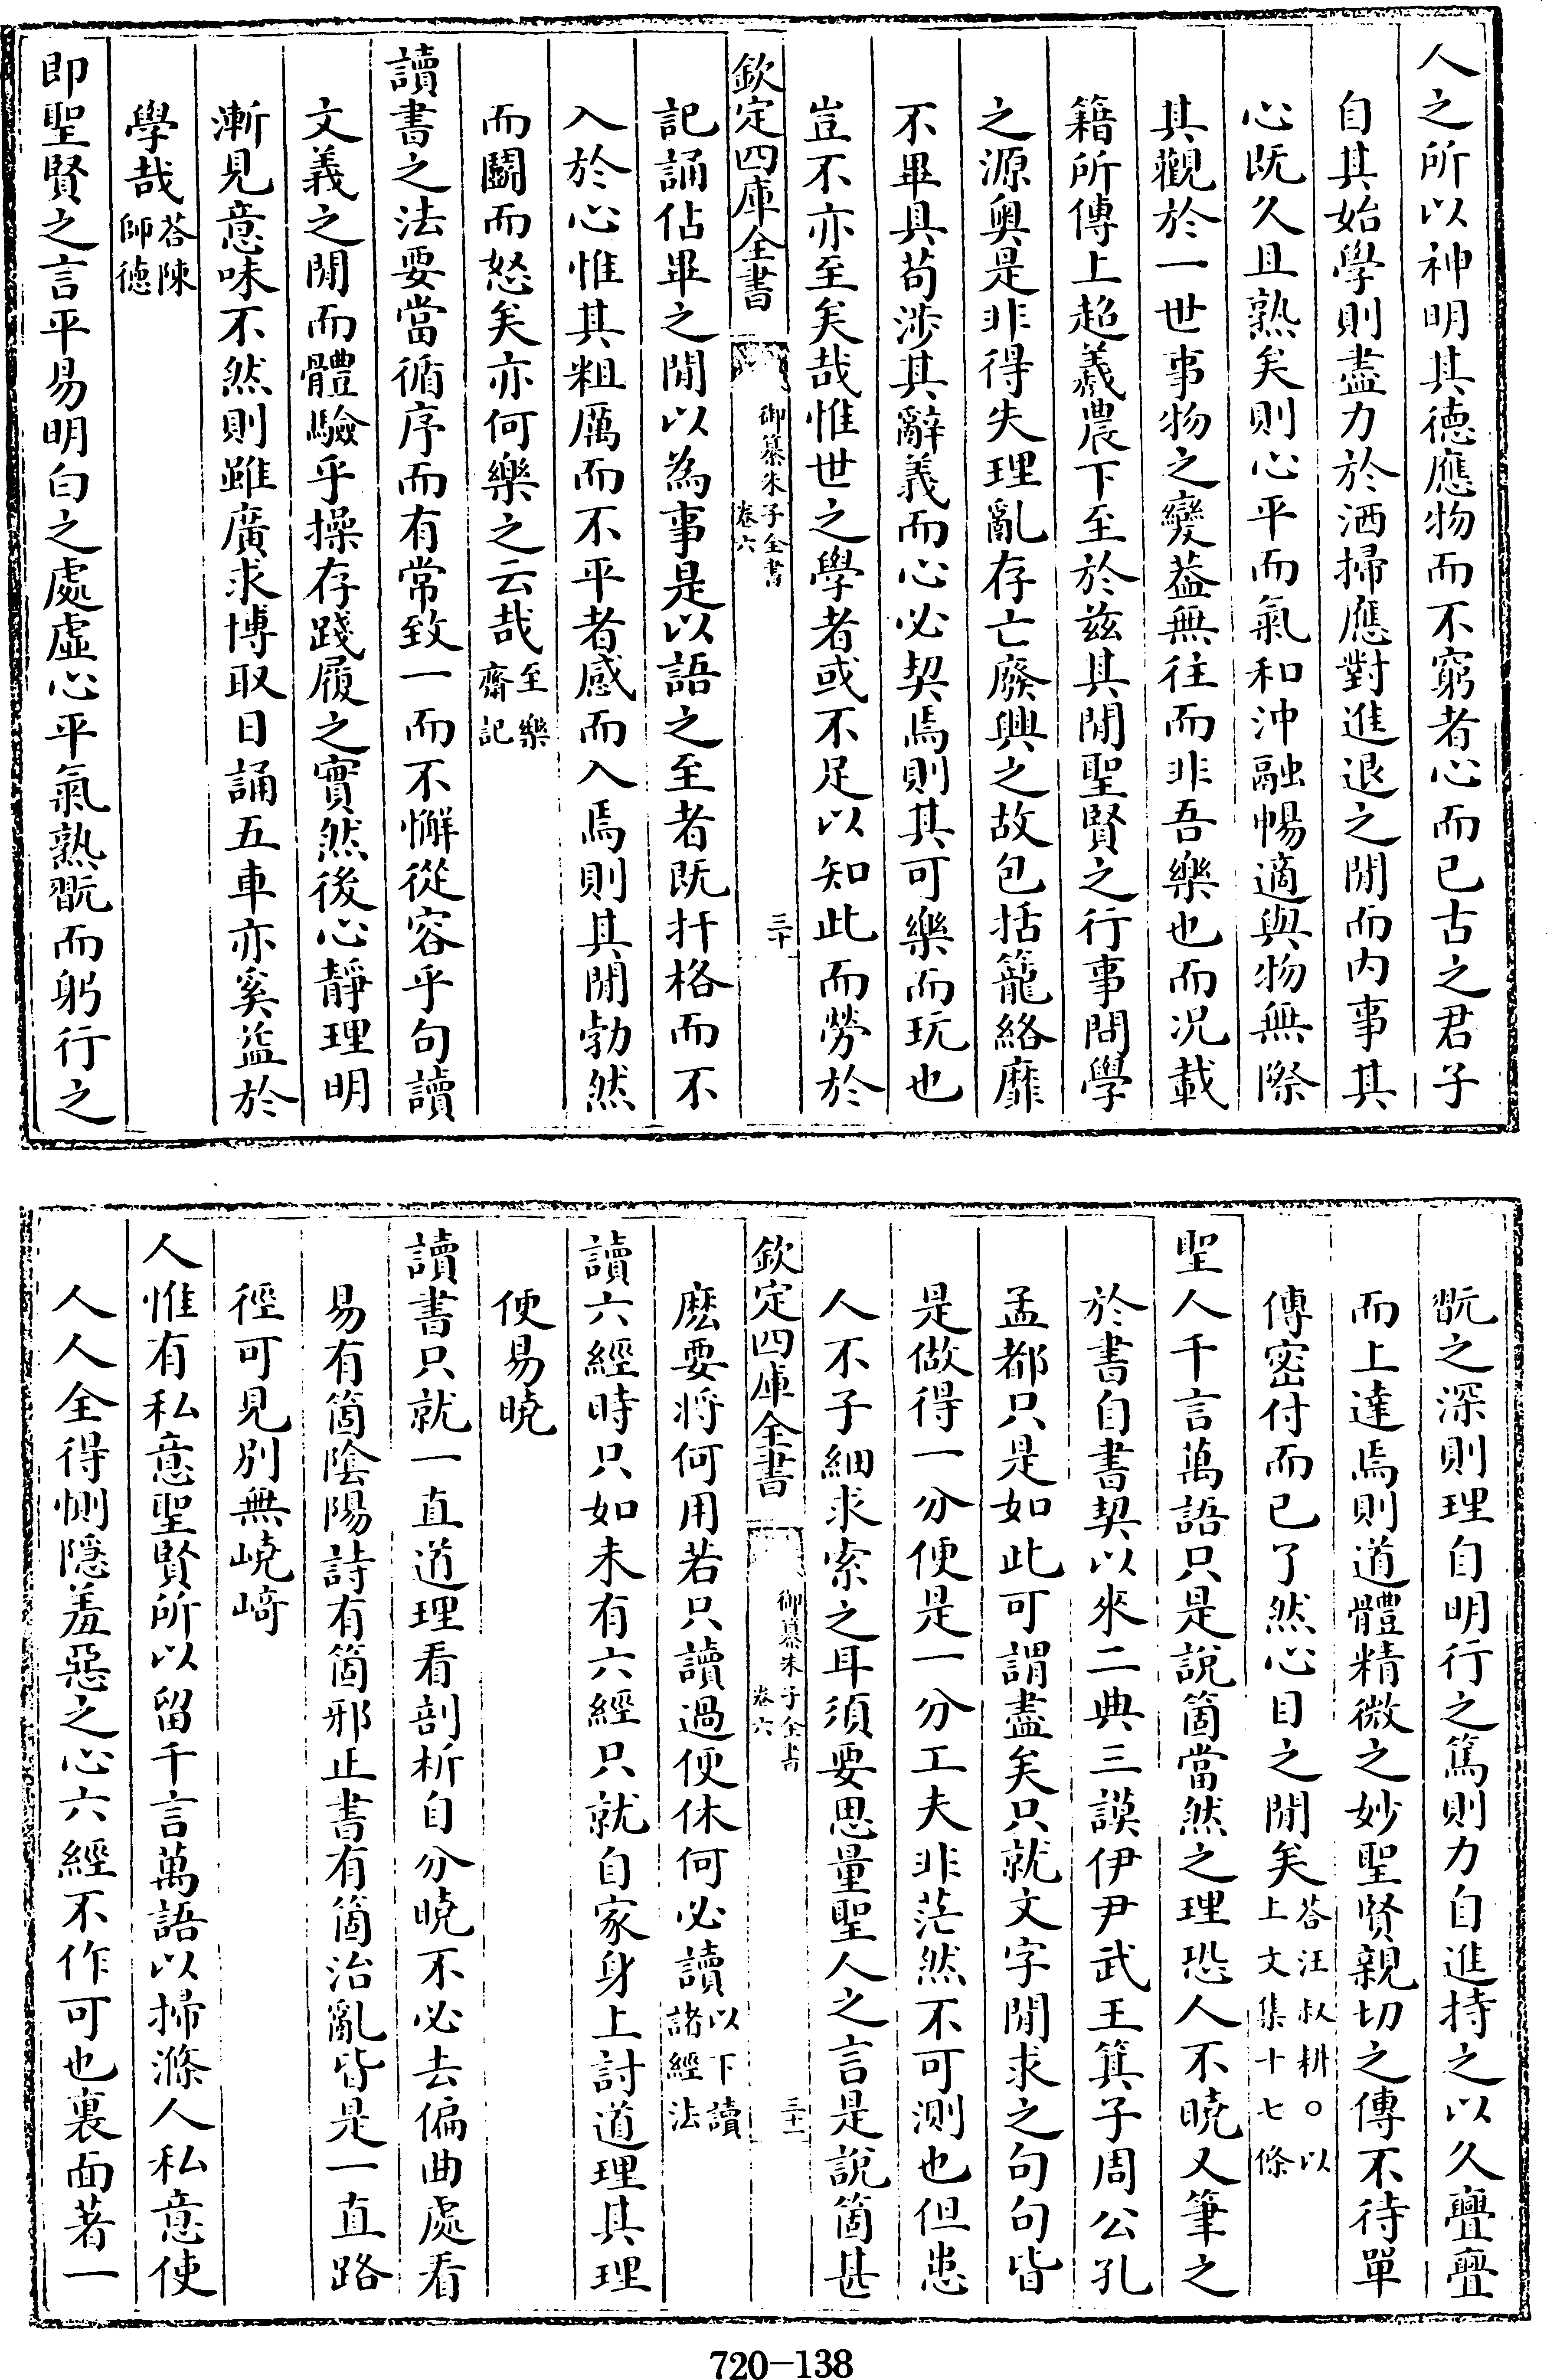 人之所以神明其德應物而不窮者心而已古之君子
自其始學則盡力於洒掃應對進退之閒而内事其
心既久且熟矣則心平而氣和沖融暢適與物無際
其觀於一世事物之變葢無往而非吾樂也而况載
籍所傳上超羲農下至於兹其閒聖賢之行事問學
之源奥是非得失理亂存亡廢興之故包括籠絡靡
不畢具苟涉其辭義而心必契焉則其可樂而玩也
豈不亦至矣哉惟世之學者或不足以知此而勞於
欽定四庫全書
御纂朱子全書
卷六
三十
記誦佔畢之閒以為事是以語之至者既扞格而不
入於心惟其粗厲而不平者感而入焉則其閒勃然
而鬬而怒矣亦何樂之云哉至樂齋記
讀書之法要當循序而有常致一而不懈從容乎句讀
文義之閒而體驗乎操存踐履之實然後心静理明
漸見意味不然則雖廣求博取日誦五車亦奚益於
學哉荅陳師德
即聖賢之言平易明白之處虚心平氣熟翫而躬行之
翫之深則理自明行之篤則力自進持之以久亹亹
而上達焉則道體精微之妙聖賢親切之傳不待單
傳密付而已了然心目之閒矣荅汪叔耕○以上文集十七條
聖人千言萬語只是說箇當然之理恐人不曉又筆之
於書自書契以來二典三謨伊尹武王箕子周公孔
孟都只是如此可謂盡矣只就文字閒求之句句皆
是做得一分便是一分工夫非茫然不可測也但患
人不子細求索之耳須要思量聖人之言是說箇甚
欽定四庫全書
御纂朱子全書
卷六
三十一
麽要將何用若只讀過便休何必讀以下讀諸經法
讀六經時只如未有六經只就自家身上討道理其理
便易曉
讀書只就一直道理看剖析自分曉不必去偏曲處看
易有箇陰陽詩有箇邪正書有箇治亂皆是一直路
徑可見别無嶢﨑
人惟有私意聖賢所以留千言萬語以掃滌人私意使
人人全得惻隱羞惡之心六經不作可也裏面著一
720-138